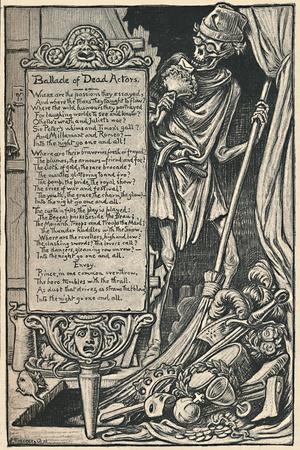 Ballade of Dead Actors.
Where are the passions they essayed,
And where the tears they made to flow?
Where the wild humours they portrayed
For laughing worlds to see and know?
Othello's wrath and Juliet's woe?
Sir Peter's whims and Timon's gall?
And Millamant and Romeo?—
Into the night go one and all!
Where are the braveries, fresh or frayed;
The plumes, the armours—friend and foe?
The cloth of gold, the rare brocade,
The mantles glittering to and fro?
The pomp, the pride, the royal show?
The cries of war and festival?
The youth, the grace, the charm, the glow?
Into the night go one and all.
The curtain falls, the play is played:
The Beggar packs beside the Beau;
The Monarch troops and troops the Maid;
The Thunder huddles with the Snow.
Where are the revellers, high and low?
The clashing swords? The lovers call?
The dancers, gleaming row on row?—
Into the night go one and all.
Envoy.
Prince, in one common overthrow,
The hero tumbles with the thrall.
As dust that drives, as straws that blow
Into the night go one and all.